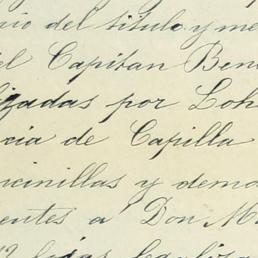 io del titulo y me
el Capitan Ben
zadas por Loh
cia de Capilla
icinillas y demá
entes a Don M